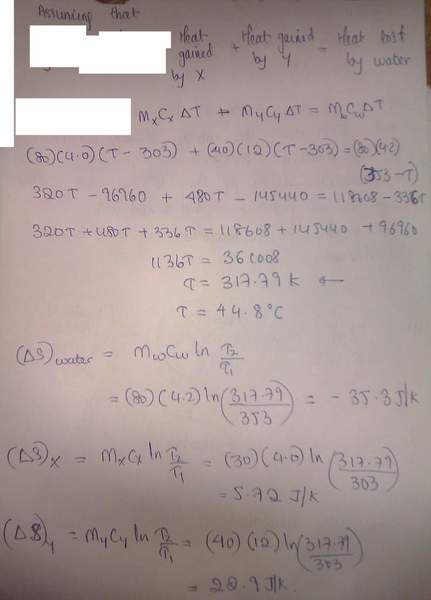 Assuming that
Heat gained by X + Heat gained by Y = Heat lost by water
MxCxΔT + MyCyΔT = MwCwΔT
(80)(4.0)(T-303) + (40)(12)(T-303) = (80)(4.2)
(353-T)
320T - 96960 + 480T - 145440 = 118608 - 336T
320T + 480T + 336T = 118608 + 145440 + 96960
1136T = 361008
T = 317.79 k ←
T = 44.8°C
(ΔS)water = MwCw ln T2/T1
= (80)(4.2) ln(317.79/353) = - 35.3 J/k
(ΔS)x = MxCx ln T2/T1 = (30)(4.0) ln(317.79/303)
= 5.72 J/k
(ΔS)y = MyCy ln T2/T1 = (40)(12) ln(317.79/303)
= J/k.